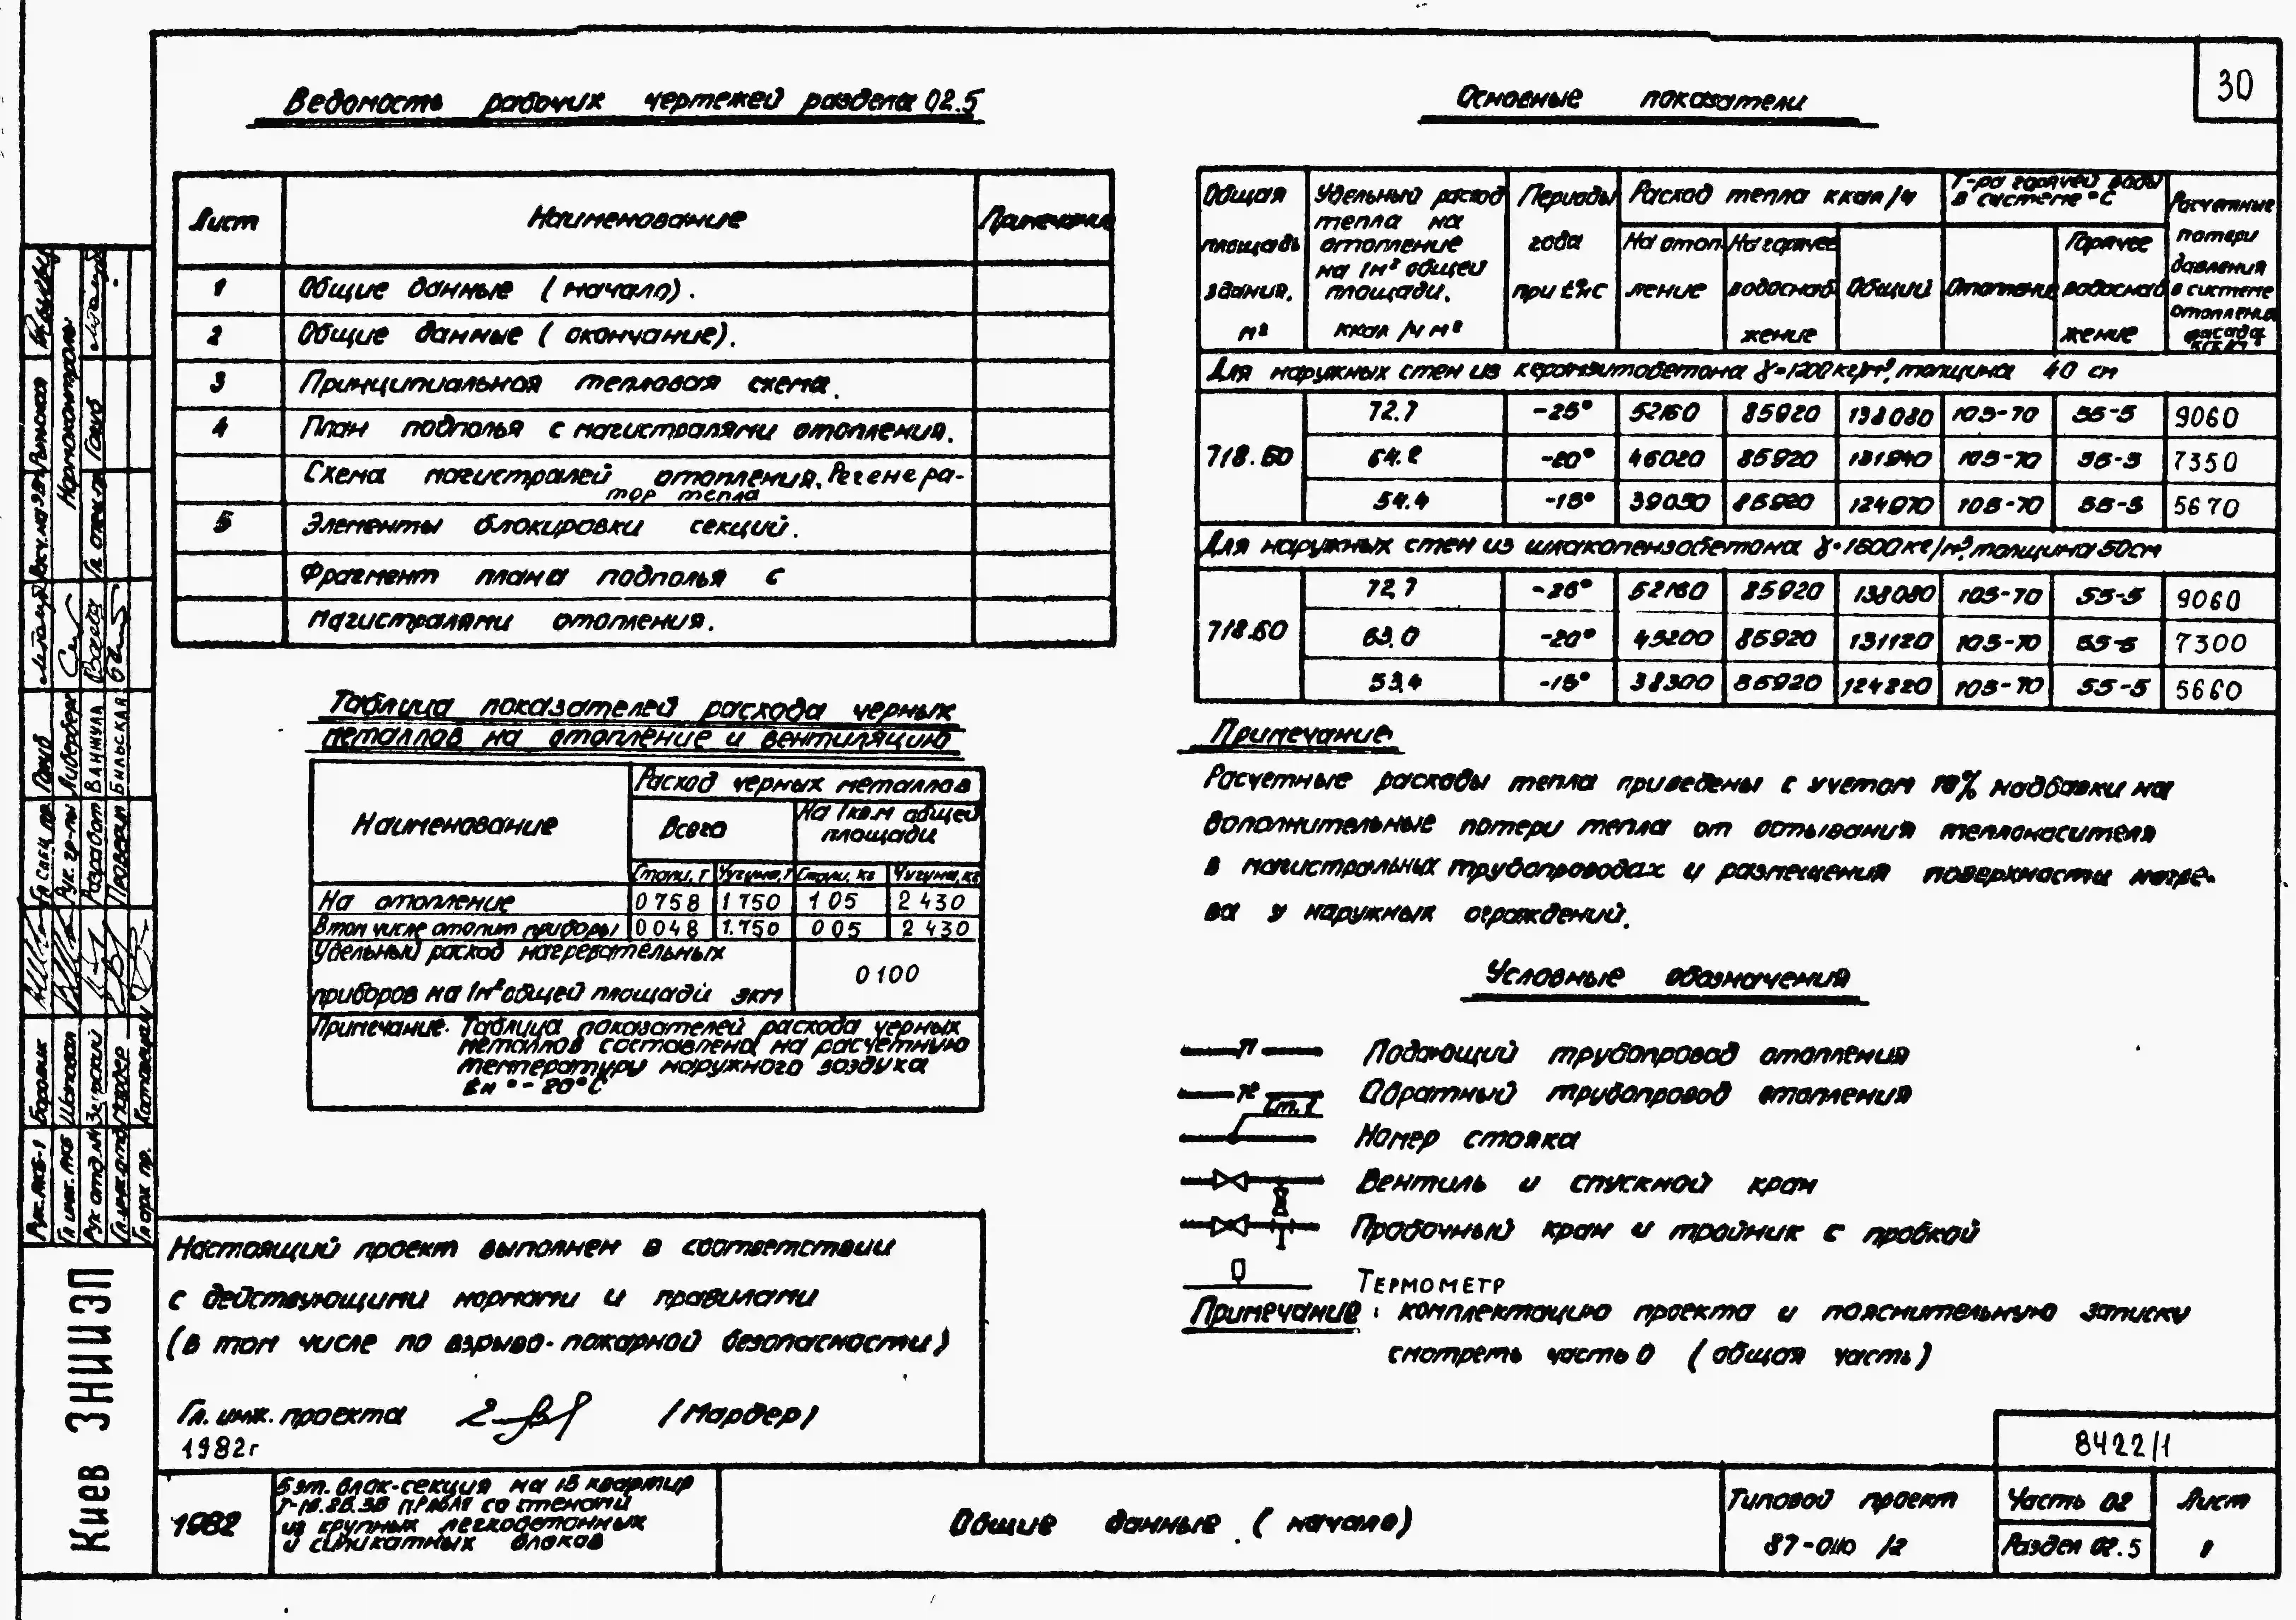 30
Ведомость рабочих чертежей раздела 02.5
Лист Наименование Примечание
1 Общие данные (начало).
2 Общие данные (окончание).
3 Принципиальная тепловая схема.
4 План подполья с магистралями отопления.
Схема магистралей отопления. Регенера-
тор тепла
5 Элементы блокировки секций.
Фрагмент плана подполья с
магистралями отопления.
Таблица показателей расхода черных
металлов на отопление и вентиляцию
Наименование Расход черных металлов
Всего На 1 кв.м общей площади
Стали, т Чугуна, т Стали, кг Чугуна, кг
На отопление 0758 1750 105 2430
В том числе отопит приборы 0048 1.750 005 2430
Удельный расход нагревательных
приборов на 1м² общей площади экм 0100
Примечание. Таблица показателей расхода черных
металлов составлена на расчетную
температуру наружного воздуха
tн = -20°C
Основные показатели
Общая площадь здания, м²
Удельный расход тепла на отопление на 1м² общей площади, ккал/ч м²
Периоды года при t°нс
Расход тепла ккал/ч
На отопление На горячее водоснабжение Общий
Т-ра горячей воды в системе °C
Отопление Горячее водоснабжение
Расчетные потери давления в системе отопления
Для наружных стен из керамзитобетона γ=1200 кг/м³, толщина 40 см
718.60 72.7 -25° 52160 85920 138080 105-70 55-5 9060
64.2 -20° 46020 85920 131940 105-70 55-5 7350
54.4 -15° 39050 85920 124970 105-70 55-5 5670
Для наружных стен из шлакопензобетона γ=1600 кг/м³, толщина 50 см
718.60 72.7 -25° 52160 85920 138080 105-70 55-5 9060
63.0 -20° 45200 85920 131120 105-70 55-5 7300
53.4 -15° 38300 85920 124220 105-70 55-5 5660
Примечание
Расчетные расходы тепла приведены с учетом % надбавки на
дополнительные потери тепла от остывания теплоносителя
в магистральных трубопроводах и размещения поверхности нагре-
ва у наружных ограждений.
Условные обозначения
Подающий трубопровод отопления
Обратный трубопровод отопления
Ст. 1
Номер стояка
Вентиль и спускной кран
Пробочный кран и тройник с пробкой
Термометр
Примечание: комплектацию проекта и пояснительную записку
смотреть часть 0 (общая часть)
Настоящий проект выполнен в соответствии
с действующими нормами и правилами
(в том числе по взрыво-пожарной безопасности)
Гл. инж. проекта (Мардер)
1982г
8422/1
1982
5 эт. блок-секция на 15 квартир
со стенами
из крупных легкобетонных
и силикатных блоков
Общие данные (начало)
Типовой проект
87-0110/2
Часть 02
Раздел 02.5
Лист
1
Киев ЗНИИЭП
Рук. АКБ-1 Боровик
Гл. инж. АКБ Шаповал
Гл. арх. пр.
Гл. спец. Голуб
Рук. гр-пы Лидерберг
Разработ Ванжула
Проверил Бильская
Нормоконтроль
Голуб